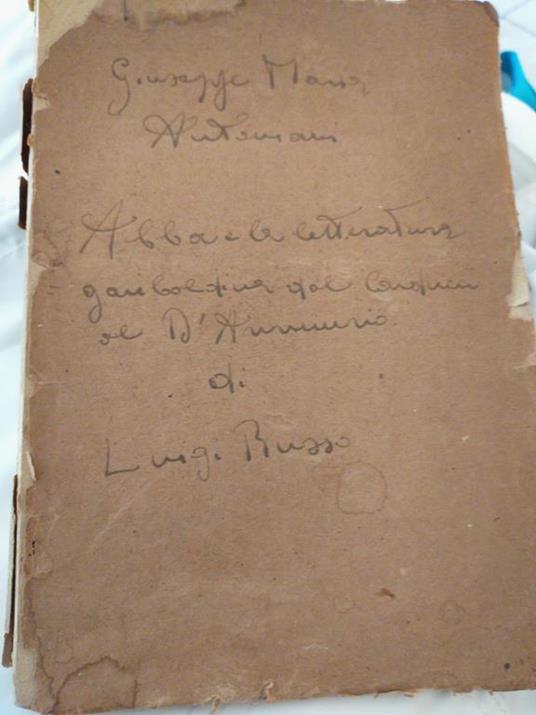 Giuseppe Maria
Antemani
Abba e la letteratura
garibaldina dal Carducci
al D'Annunzio
di
Luigi Russo